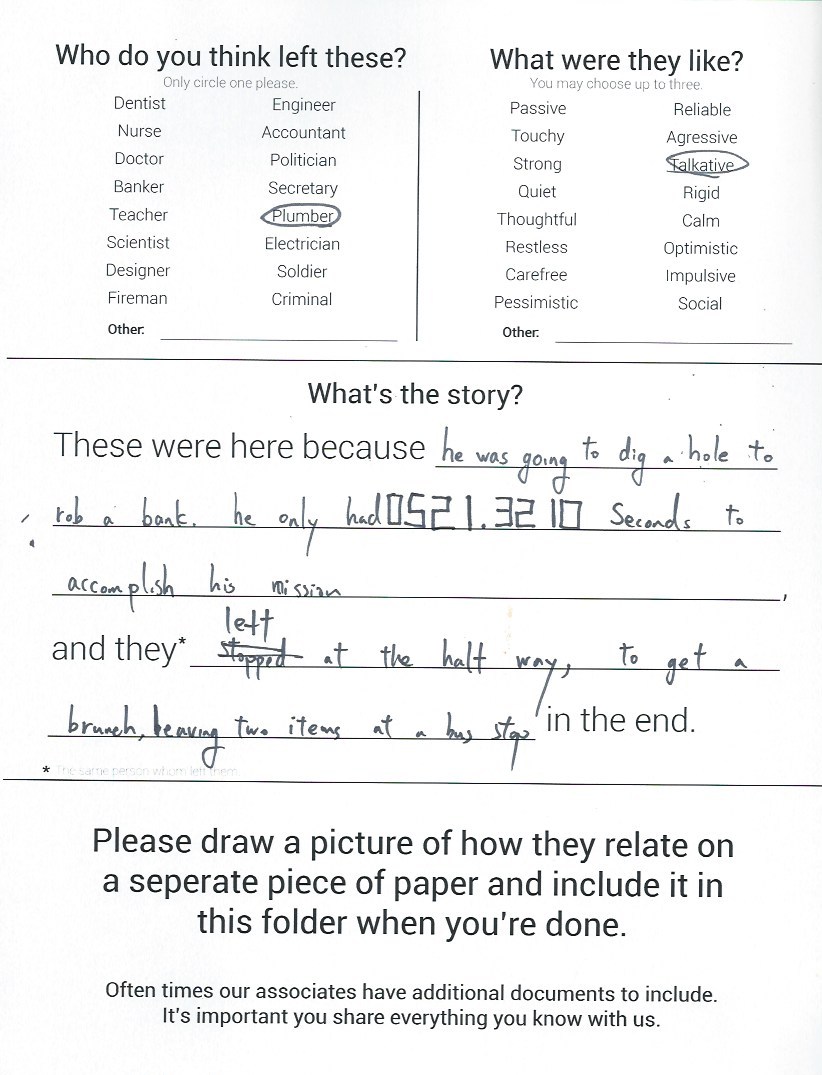 Who do you think left these?
Only circle one please.
Dentist
Nurse
Doctor
Banker
Teacher
Scientist
Designer
Fireman
Engineer
Accountant
Politician
Secretary
Plumber
Electrician
Soldier
Criminal
Other:
What were they like?
You may choose up to three.
Passive
Touchy
Strong
Quiet
Thoughtful
Restless
Carefree
Pessimistic
Reliable
Agressive
Talkative
Rigid
Calm
Optimistic
Impulsive
Social
Other:
What's the story?
These were here because he was going to dig a hole to
rob a bank. he only had 0521.3210 Seconds to
accomplish his mission,
left
and they* stopped at the half way, to get a
brunch, leaving two items at a bus stop in the end.
* The same person whom left them
Please draw a picture of how they relate on
a seperate piece of paper and include it in
this folder when you're done.
Often times our associates have additional documents to include.
It's important you share everything you know with us.